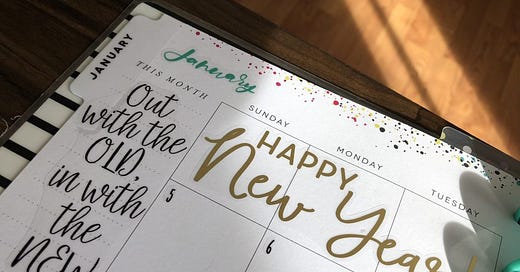 JANUARY
January
THIS MONTH
Out
with the
OLD,
in with
the
NEW
SUNDAY
MONDAY
TUESDAY
HAPPY
New Year
5
6